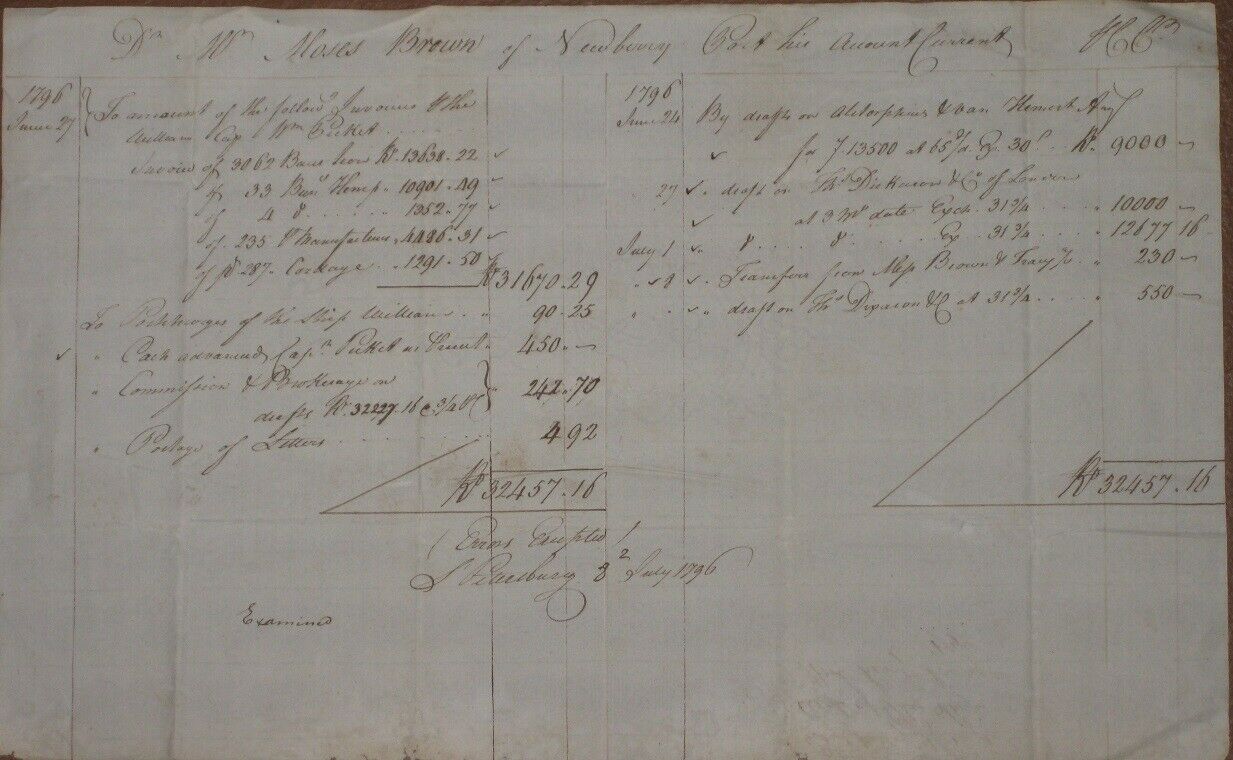 Dr Mr Moses Brown of Newbury Port his Account Current Cr
1796
June 27
To amount of the followg Invoices ℔ the
William Cap Wm Picket
Invoice of 3062 Bars Iron Rs 13638.22
of 33 Bunds Hemp " 10901.49
of 4 d° 1352.77
of 235 Manufacture " 4486.31
of 287 Cordage " 1291.50
Rs 31670.29
To Portcharges of the Ship William " 90.25
" Cash advanced Capn Picket 450 "
" Commission & Brokerage on
drafts Rs 32227.16 @ 3/4 242.70
" Postage of Letters 4 92
Rs 32457.16
1796
June 24
By drafts on & van Hemert
for ƒ 13500 at 65 30 Rs 9000
27 " draft on Ths Dickason & Co of London
at 3 date Exch. 31 3/4 " 10000
July 1 " d° d° Ex 31 3/4 " 12677 16
" 8 " Transfer from Mess Brown & " 230
" " draft on Ths Dixason & C at 31 3/4 " 550
Rs 32457.16
Errors Excepted
St Petersburg July 1796
Examined